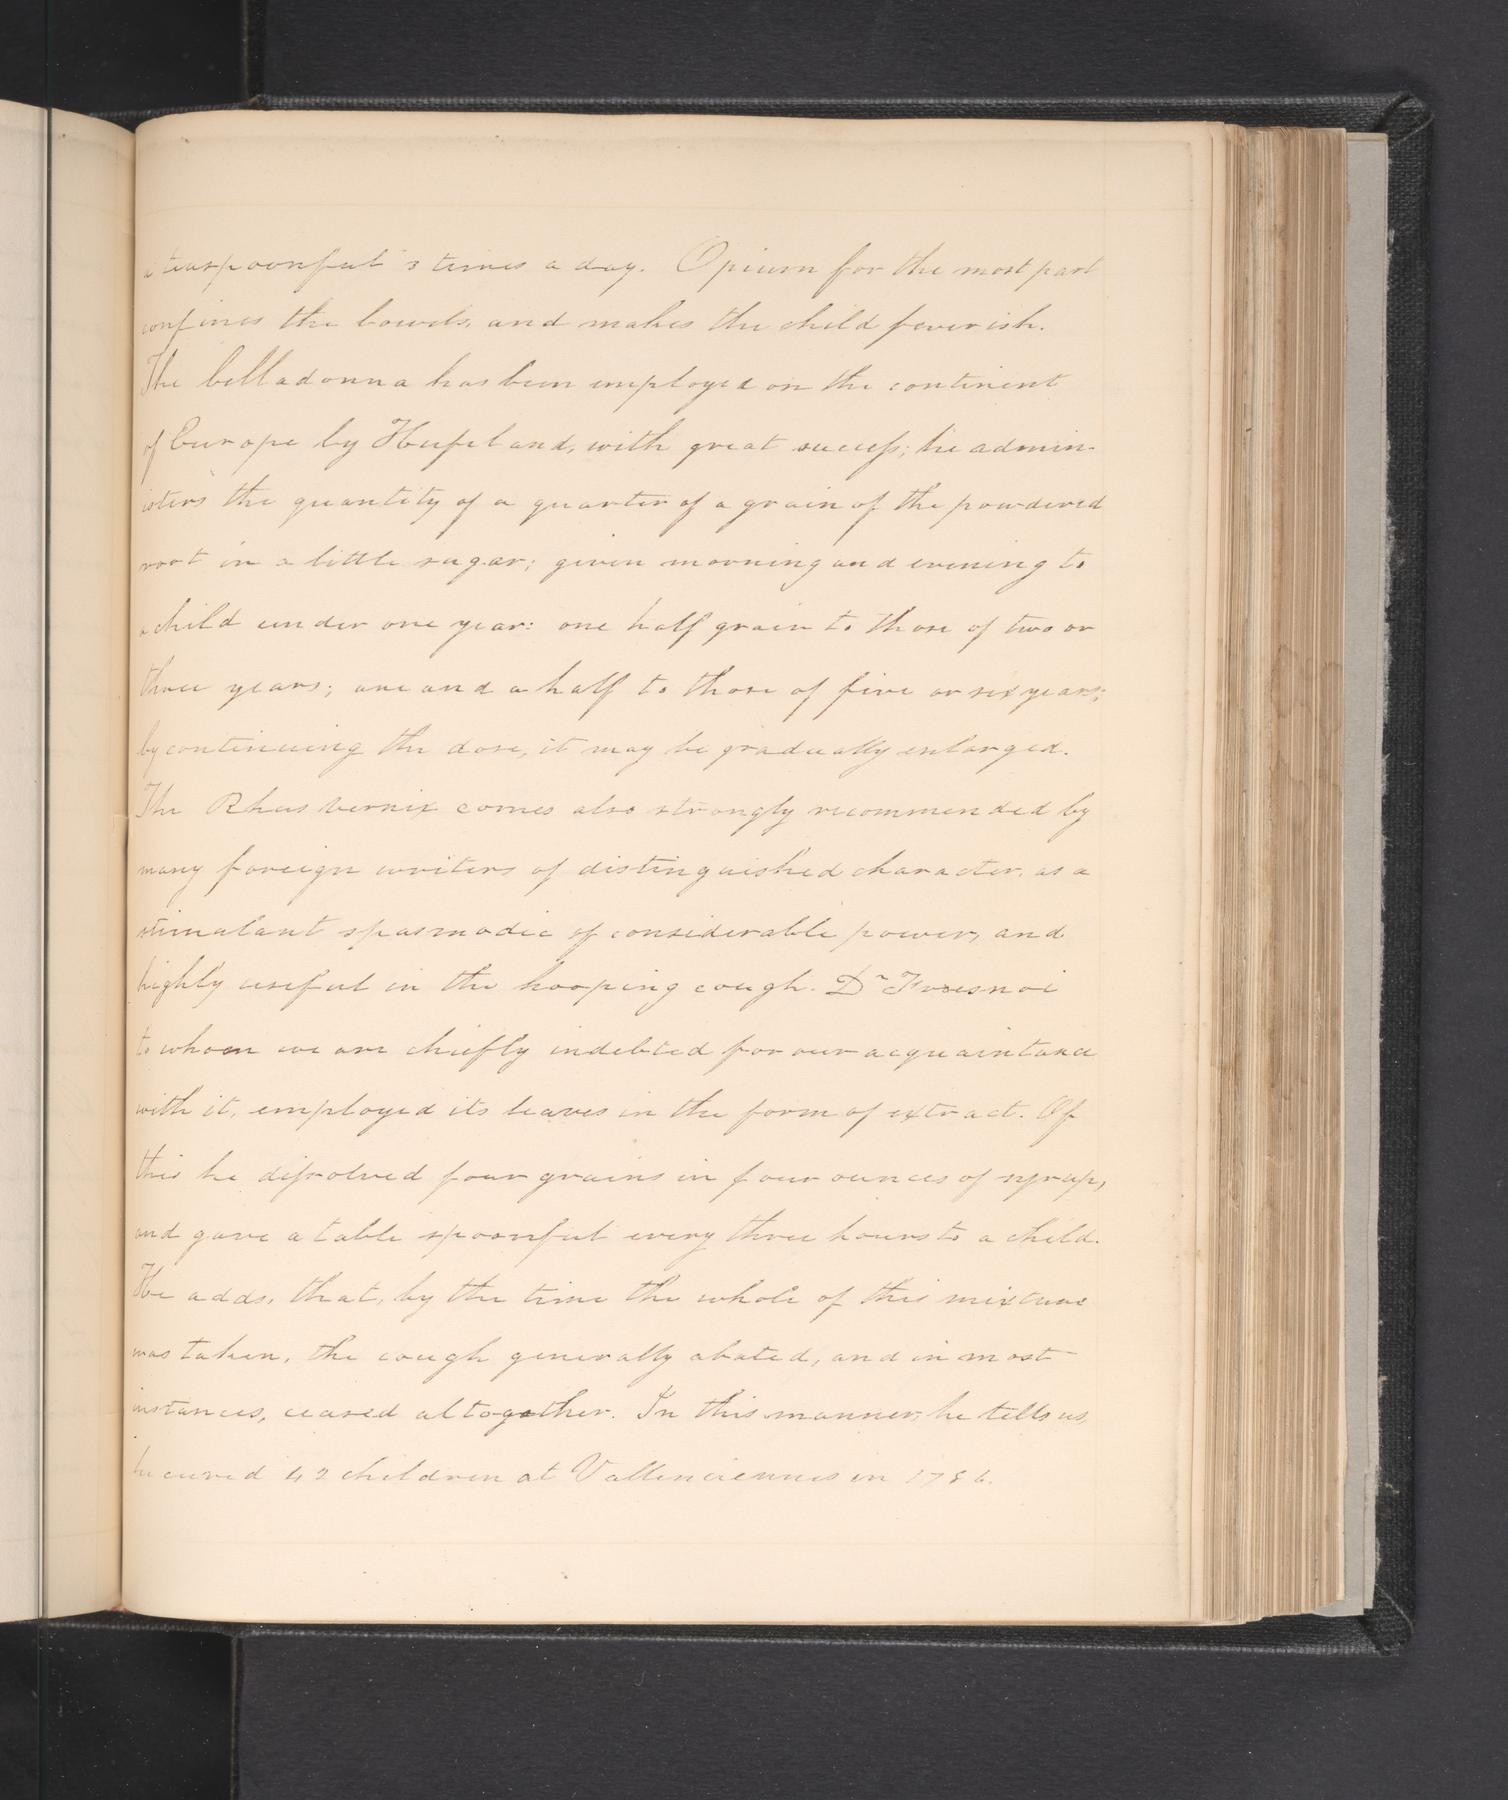 a teaspoonful 3 times a day. Opium for the most part
confines the bowels, and makes the child feverish.
The belladonna has been employed on the continent
of Europe by Hufeland, with great success; he admin-
isters the quantity of a quarter of a grain of the powdered
root in a little sugar; given morning and evening to
a child under one year: one half grain to those of two or
three years; one and a half to those of five or six years;
by continuing the dose, it may be gradually enlarged.
The Rhus vernix comes also strongly recommended by
many foreign writers of distinguished character, as a
stimulant spasmodic of considerable power, and
highly useful in the hooping cough. Dr Fresnoi
to whom we are chiefly indebted for our acquaintance
with it, employed its leaves in the form of extract. Of
this he dissolved four grains in four ounces of syrup,
and gave a table spoonful every three hours to a child.
He adds, that, by the time the whole of this mixture
was taken, the cough generally abated, and in most
instances, ceased altogether. In this manner, he tells us,
he cured 42 children at Vallenciennes in 1786.